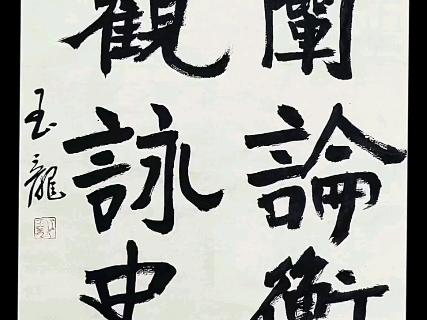 闡論衡
觀詠史
玉龍